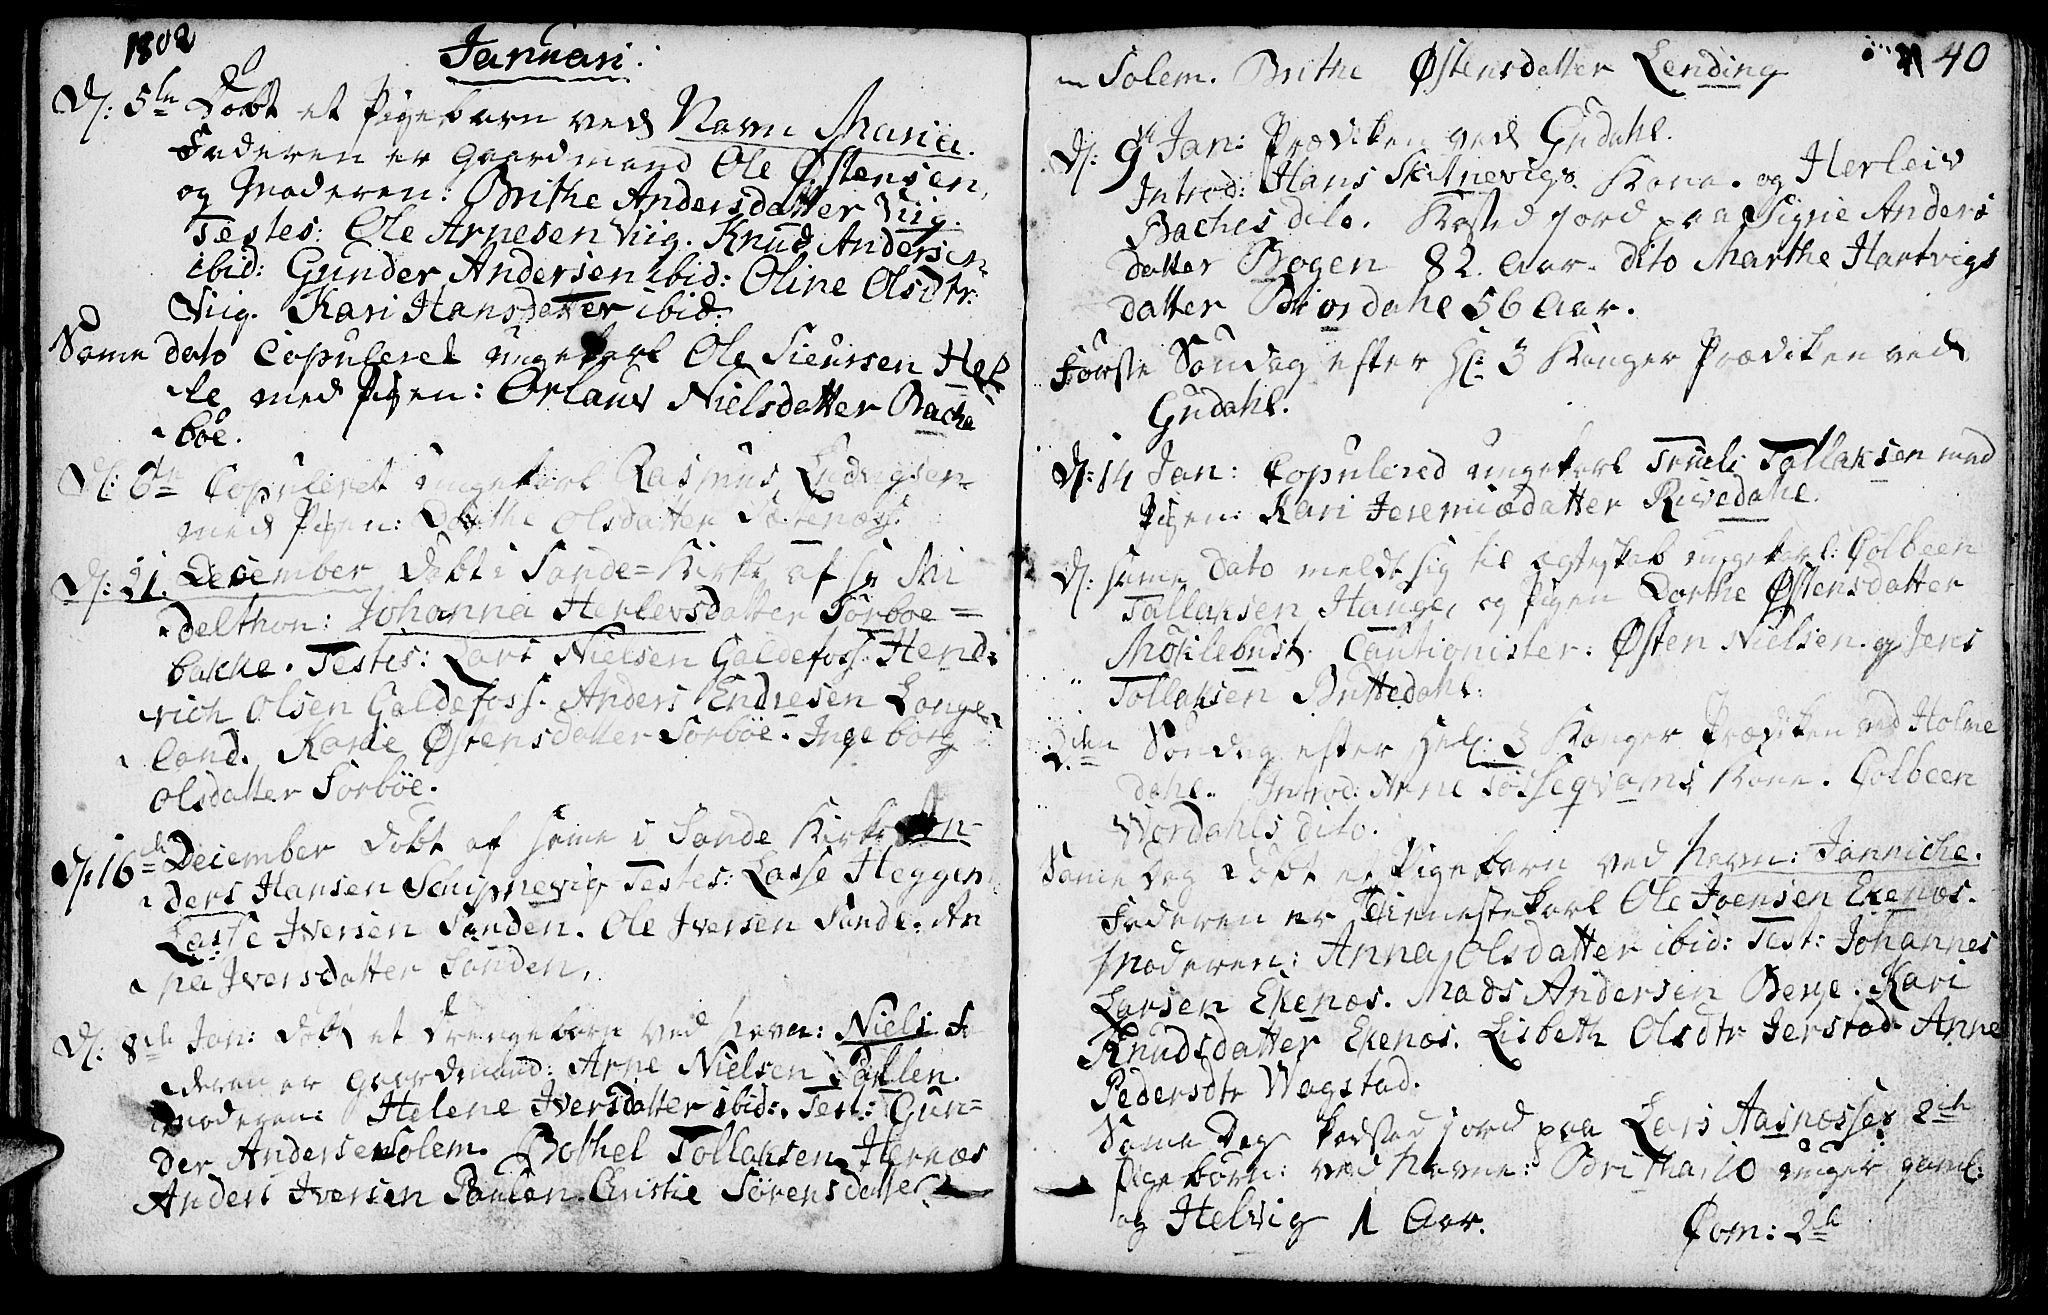 1802
Januari.
D: 5te Döbt et Pigebarn ved Navn Maria.
Faderen er Gaardmand Ole Østensen,
og Moderen: Brithe Andersdatter Viig.
Testes: Ole Arnesen Viig. Knud Andersen
ibid: Gunder Andersen ibid: Oline Olsdtr:
Viig. Kari Hansdatter ibid.
Same dato Copuleret ungekarl Ole Sieursen Hes
te med Pigen: Orlaug Nielsdatter Bache
böe.
D: 6te Copuleret ungekarl Rasmus Ludvigsen
med Pigen: Dorthe Olsdatter
D: 21. December Döbt i Sande=Kirke af Hr Mi
delthon: Johanna Herlevsdatter Sörböe=
bakke. Testes: Lars Nielsen Galdefoss. Hend=
rich Olsen Galdefoss. Anders Endresen Lange
land. Karie Østensdatter Sörböe. Ingeborg
Olsdatter Sörböe.
D: 16de December Döbt af same i Sande Kirke An-
ders Hansen Schipnevig Testes: Lasse Heggen
Lasse Iversen Sanden. Ole Iversen Sande. An
na Iversdatter Sanden.
D: 8de Jan: Döbt et Drengebarn ved Navn: Niels Fa
deren er Gaardmand: Arne Nielsen Pahlen.
Moderen: Helene Iversdatter ibid:. Test: Gun=
der Andersen Solem. Bothel Tollaksen Hernæs
Anders Iversen Pahlen. Christie Sörensdatter
40
Solem. Brithe Østensdatter Lending
D: 9de Jan: Prædiken ved Gudahl.
Introd: Hans Skipnevigs Kone. og Herleiv
Baches dito. Kasted jord paa Signe Anders
datter Bogen 82. Aar. dito Marthe Hartvigs
datter Biordahl 56 Aar.
Förste Söndag efter H: 3 Konger Prædiken ved
Gudahl.
D: 14 Jan: Copulered ungekarl Truels Tollaksen med
Pigen: Kari Jeremiædatter Rivedahl.
D: same Dato meldt sig til Egteskab ungekarl: Colbeen
Tollaksen Hauge, og Pigen Dorthe Østensdatter
Möklebust. Cautionister: Østen Nielsen. og Jens
Tollaksen Buttedahl:
2den Söndag efter Hel: 3 Konger Prædiken ved Holme
dahl. Introd: Arne Tösseqvams Kone. Colbeen
Wordahls dito.
Same Dag Döbt et Pigebarn ved Navn: Janniche.
Faderen er Tienestekarl Ole Joensen Ekenæs.
Moderen: Anna Olsdatter ibid: Test: Johannes
Larsen Ekenæs. Mads Andersen Berge. Kari
Knudsdatter Ekenæs. Lisbeth Olsdtr Jerstad. Anne
Pedersdtr Wagstad.
Same Dag kasted jord paa Lars Aasnæsses 2de
Pigebörn: ved Navne: Britha, 10 uger gaml:
og Helvig 1 Aar. Com: 2de